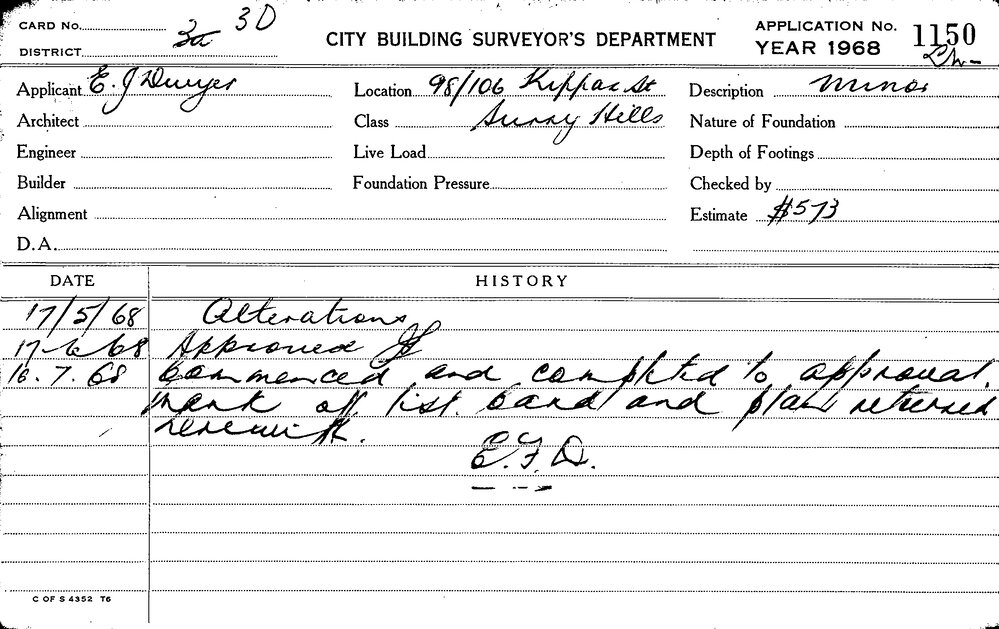 CARD No. 3D
DISTRICT 3a
CITY BUILDING SURVEYOR'S DEPARTMENT
APPLICATION No. 1150
YEAR 1968
Applicant E. J Dwyer
Location 98/106 Kippax St
Description Minor
Architect
Class Surry Hills
Nature of Foundation
Engineer
Live Load
Depth of Footings
Builder
Foundation Pressure
Checked by
Alignment
Estimate $573
D.A.
DATE HISTORY
17/5/68 Alterations
17-6-68 Approved
16.7.68 Commenced and completed to approval.
mark off list. Card and plan returned
herewith.
E.F.D.
C OF S 4352 T6